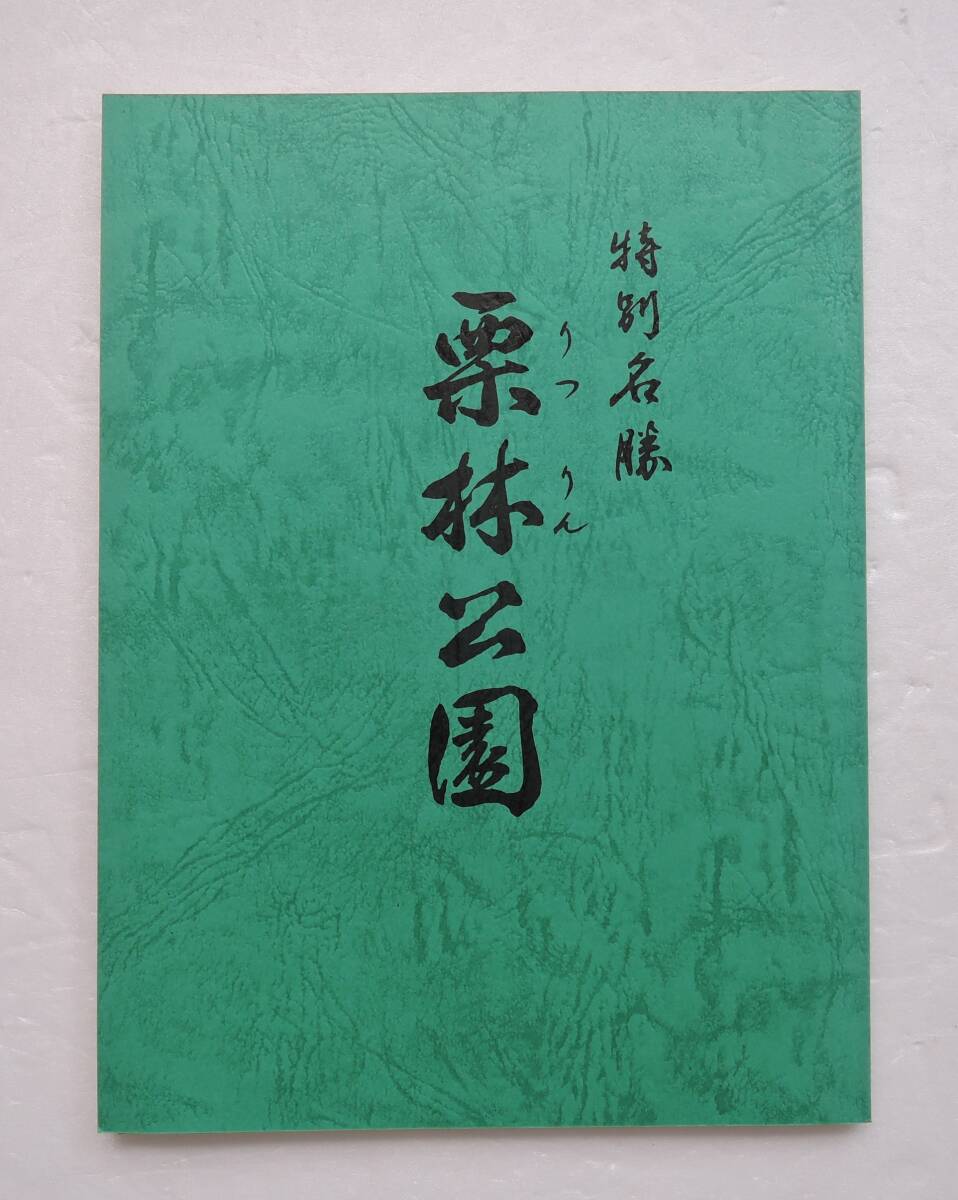 特別名勝
りつりん
栗林公園